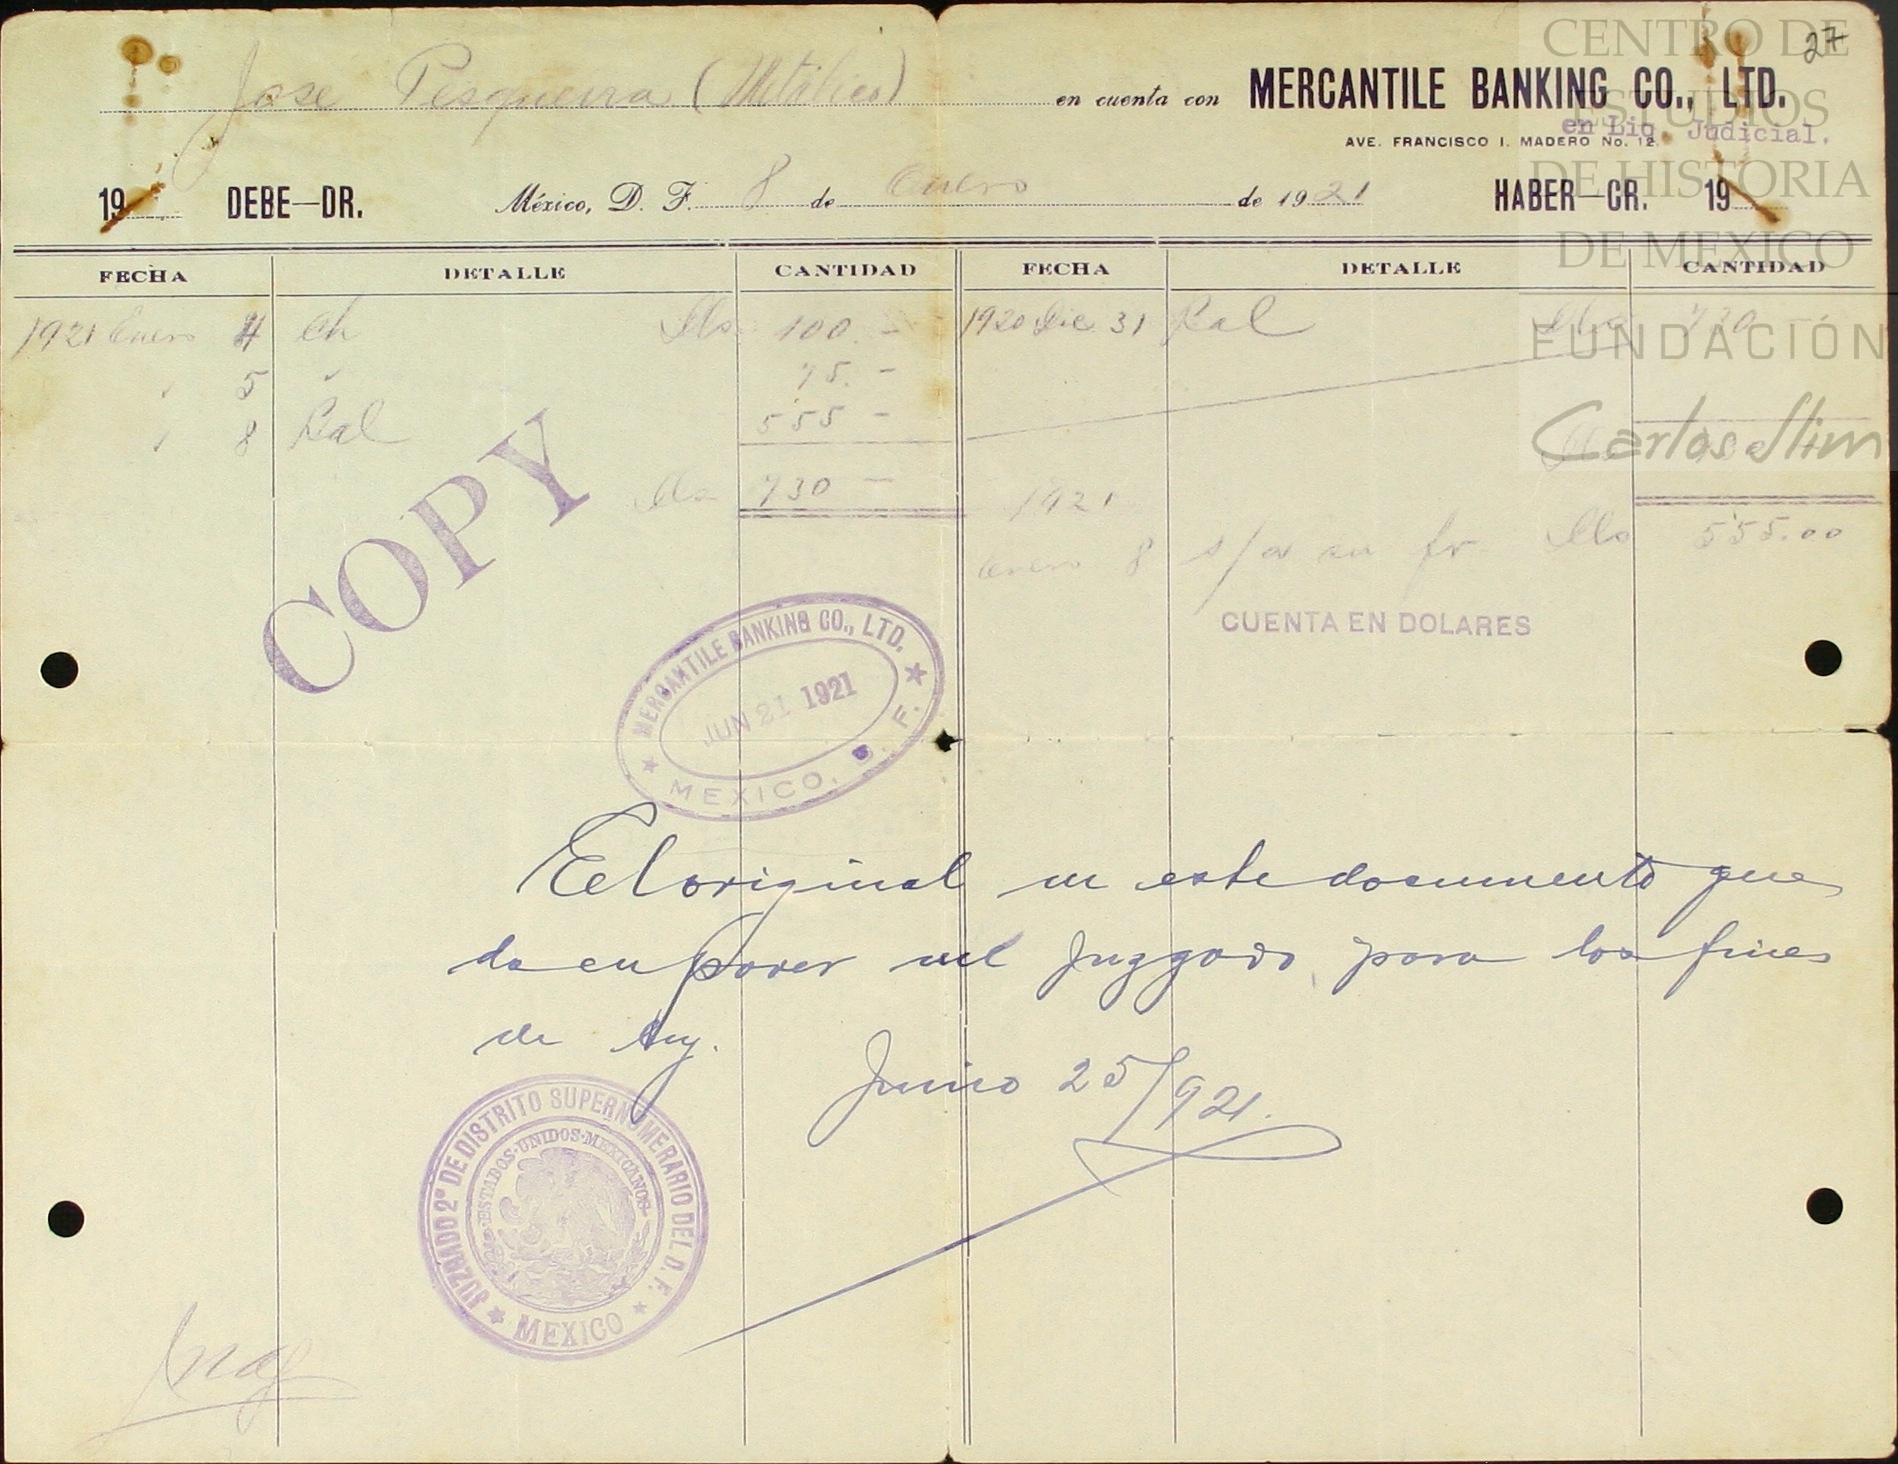 27
José Pesqueira (Metálico) en cuenta con MERCANTILE BANKING CO., LTD.
en Liq. Judicial.
AVE. FRANCISCO I. MADERO No. 12.
19 DEBE—DR. México, D. F. 8 de Enero de 1921 HABER—CR. 19
FECHA DETALLE CANTIDAD FECHA DETALLE CANTIDAD
1921 Enero 4 ch Dls 100.- 1920 Dic 31 Bal Dls 730 -
" 5 " 75.-
" 8 Bal 555 -
Dls 730 -
1921
Enero 8 s/a su fv. Dls 555.00
COPY
CUENTA EN DOLARES
MERCANTILE BANKING CO., LTD.
JUN 21 1921
MEXICO, D. F.
El original de este documento que
da en poder del Juzgado para los fines
de ley.
Junio 25/921.
JUZGADO 2º DE DISTRITO SUPERNUMERARIO DEL D. F.
ESTADOS·UNIDOS·MEXICANOS
MEXICO
CENTRO DE
ESTUDIOS
DE HISTORIA
DE MEXICO
FUNDACIÓN
Carlos Slim